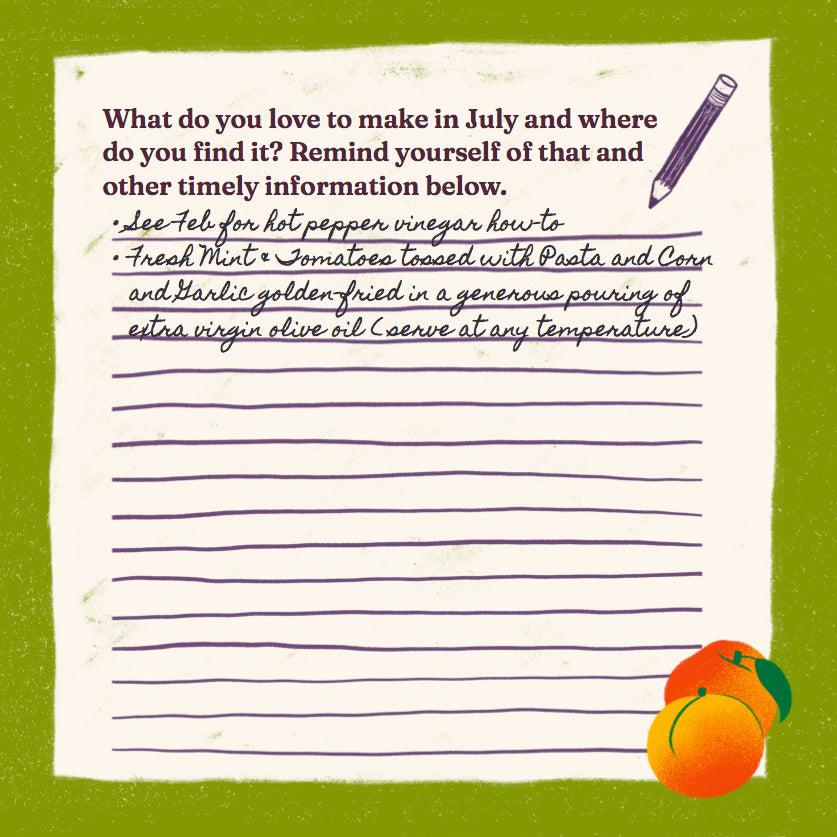 What do you love to make in July and where
do you find it? Remind yourself of that and
other timely information below.
• See Feb for hot pepper vinegar how-to
• Fresh Mint & Tomatoes tossed with Pasta and Corn
and Garlic golden-fried in a generous pouring of
extra virgin olive oil (serve at any temperature)